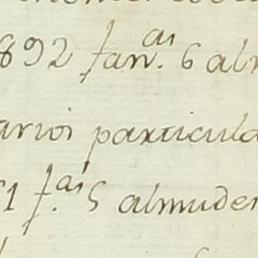 892 fan.^as 6 alm
arios particula
51 f.^as 5 almudes